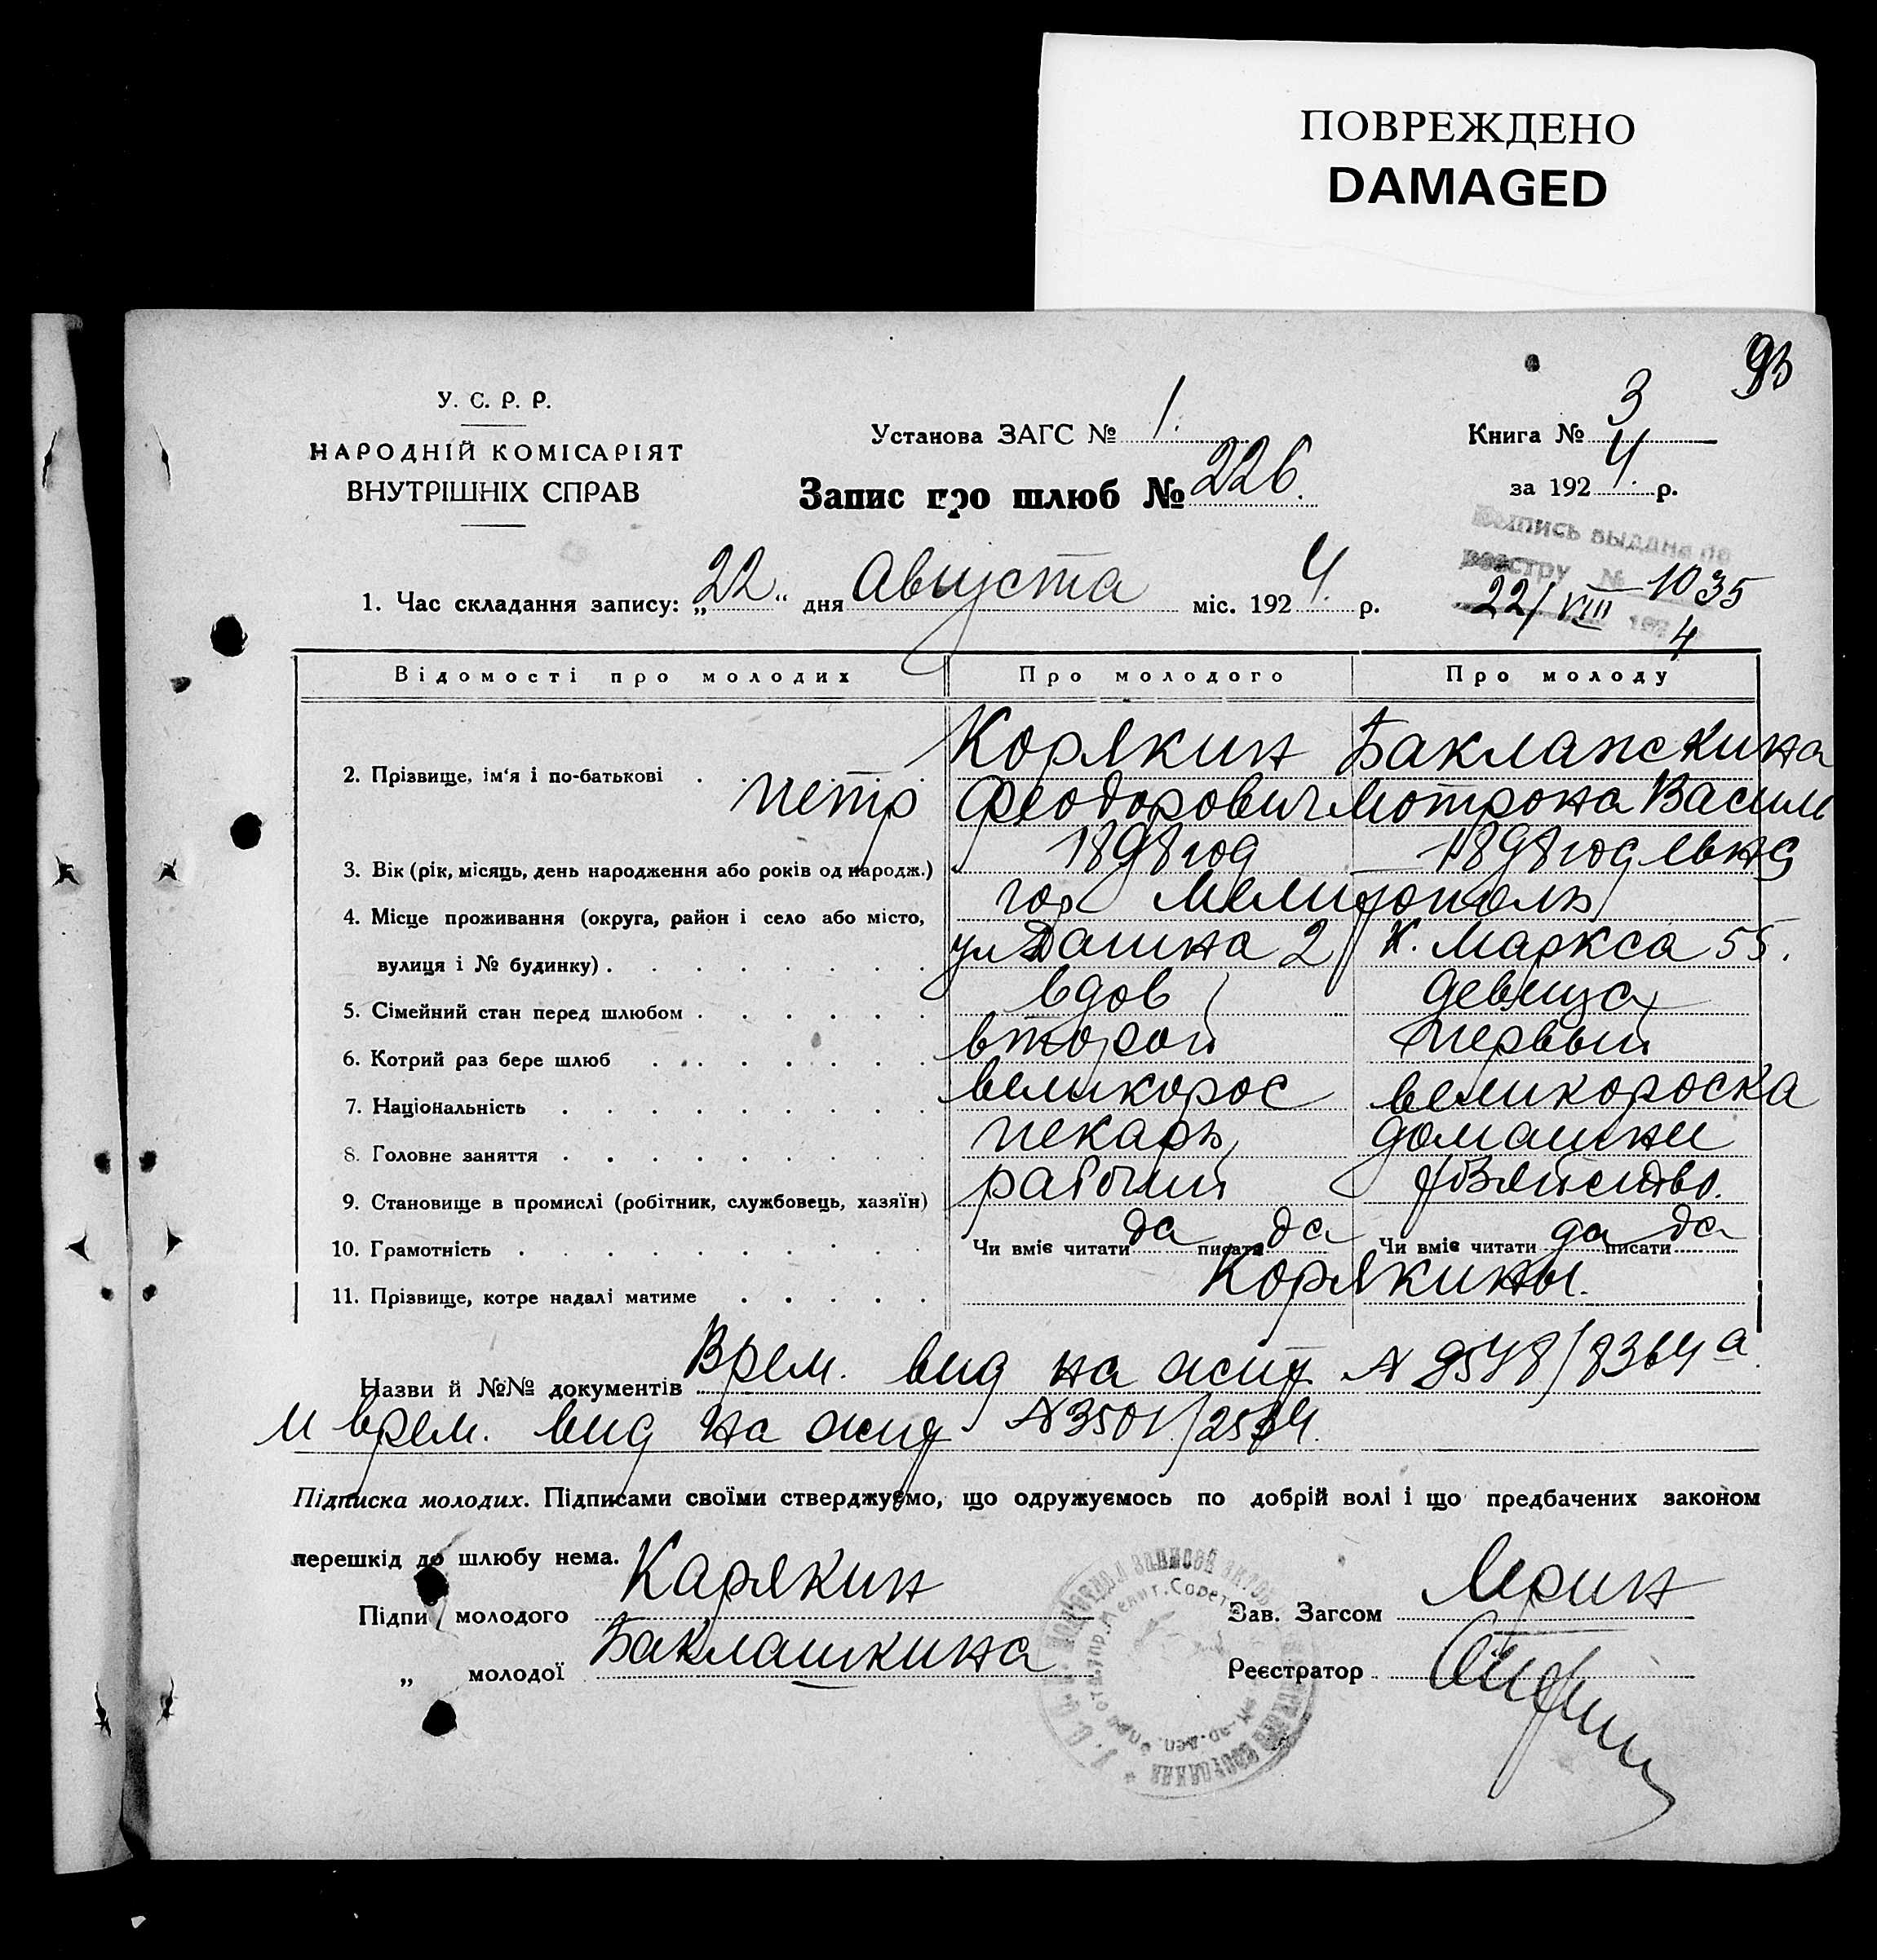 ПОВРЕЖДЕНО
DAMAGED
93
У. С. Р. Р.
НАРОДНІЙ КОМІСАРІЯТ
ВНУТРІШНІХ СПРАВ
Установа ЗАГС № 1.
Запис про шлюб № 226.
Книга № 3
за 1924. р.
Выпись выдана по
реестру № 1035
22/VIII 192 4
1. Час складання запису: „22“ дня Августа міс. 1924. р.
Відомості про молодих Про молодого Про молоду
2. Прізвище, ім'я і по-батькові
Корякин Баклапскина
Петр Феодорович Мотрона Василь
3. Вік (рік, місяць, день народження або років од народж.) 1898 год 1898 год евна
4. Місце проживання (округа, район і село або місто, гор Мелитополь
вулиця і № будинку) ул 2 К. Маркса 55.
5. Сімейний стан перед шлюбом вдов девица
6. Котрий раз бере шлюб второй первый
7. Національність великорос великороска
8. Головне заняття пекарь домашнее
9. Становище в промислі (робітник, службовець, хазяїн) рабочий хозяйство.
10. Грамотність Чи вміє читати да писати да Чи вміє читати да писати да
11. Прізвище, котре надалі матиме Корякины.
Назви й №№ документів Врем. вид на жит № 9548/8364 а
и врем. вид на жит № 3501/2564.
Підписка молодих. Підписами своїми стверджуємо, що одружуємось по добрій волі і що предбачених законом
перешкід до шлюбу нема.
Підпис молодого Карякин
„ молодої Баклашкина
Зав. Загсом
Реєстратор